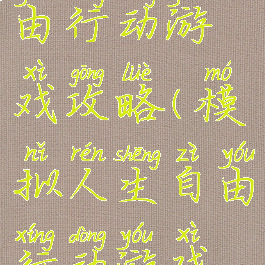 由行动游
xì gōng lüè mó
戏攻略(模
nǐ rén shēng zì yóu
拟人生自由
xíng dòng yóu xì
行动游戏